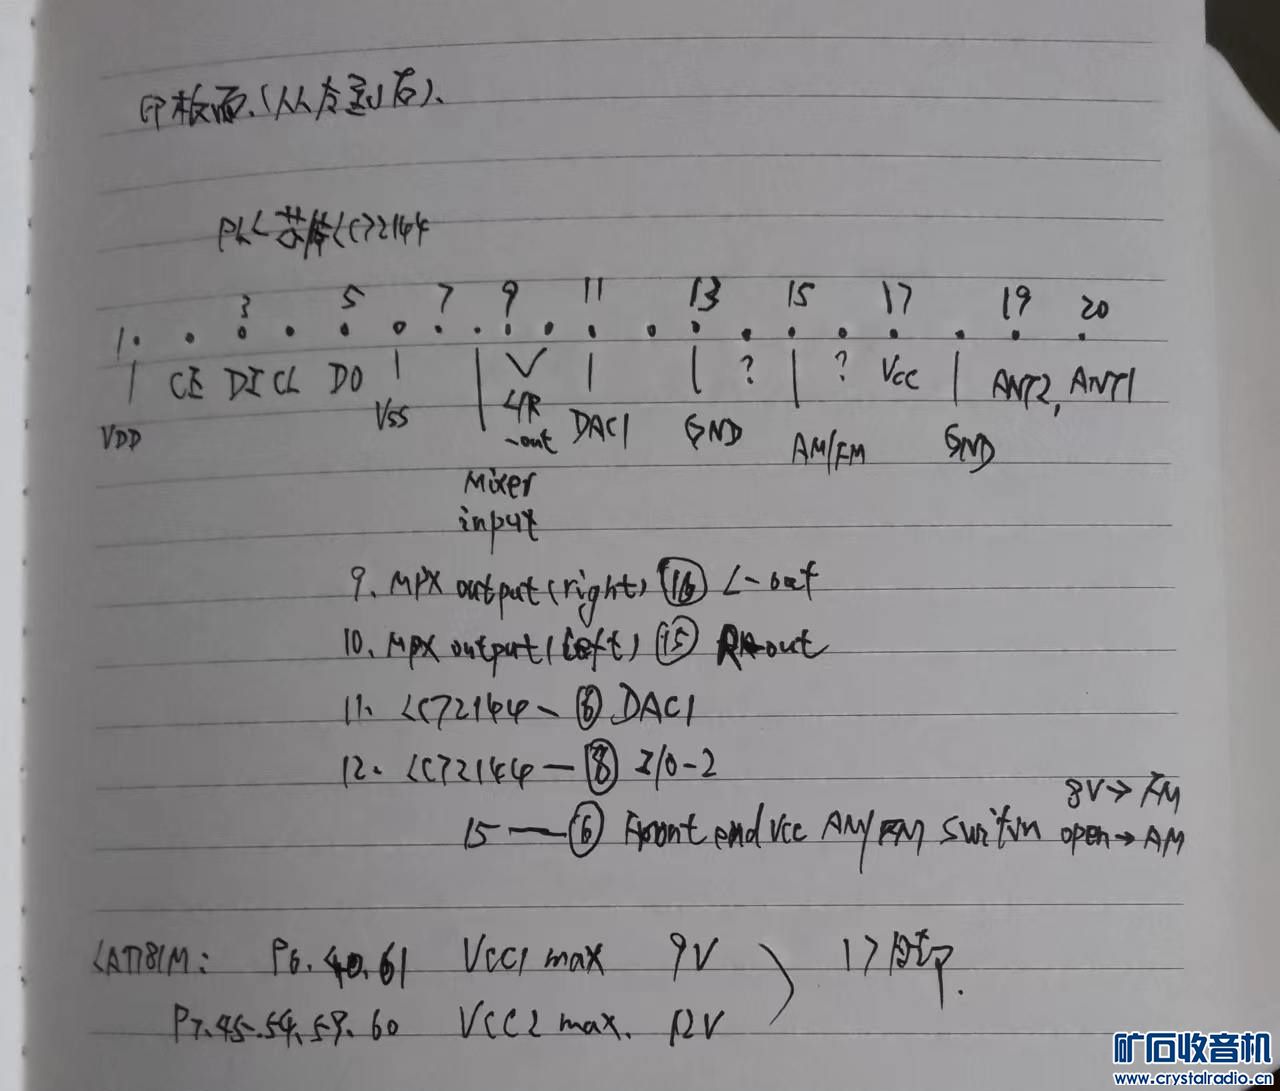 印板面.(从左到右).
PLL芯片LC72144
1 3 5 7 9 11 13 15 17 19 20
VDD CE DI CL DO VSS L/R-out DAC1 GND ? AM/FM ? Vcc GND ANT2, ANT1
Mixer
input
9. MPX output(right) ⑯ L-out
10. MPX output(left) ⑮ R-out
11. LC72144- ⑥ DAC1
12. LC72144-⑧ I/O-2
8V→FM
15-⑥ Front end Vcc AM/FM Switch open→AM
LA1781M: P6.40.61 VCC1 max 9V 17
P7.45.54.59.60 VCC2 max. 12V
矿石收音机
www.crystalradio.cn